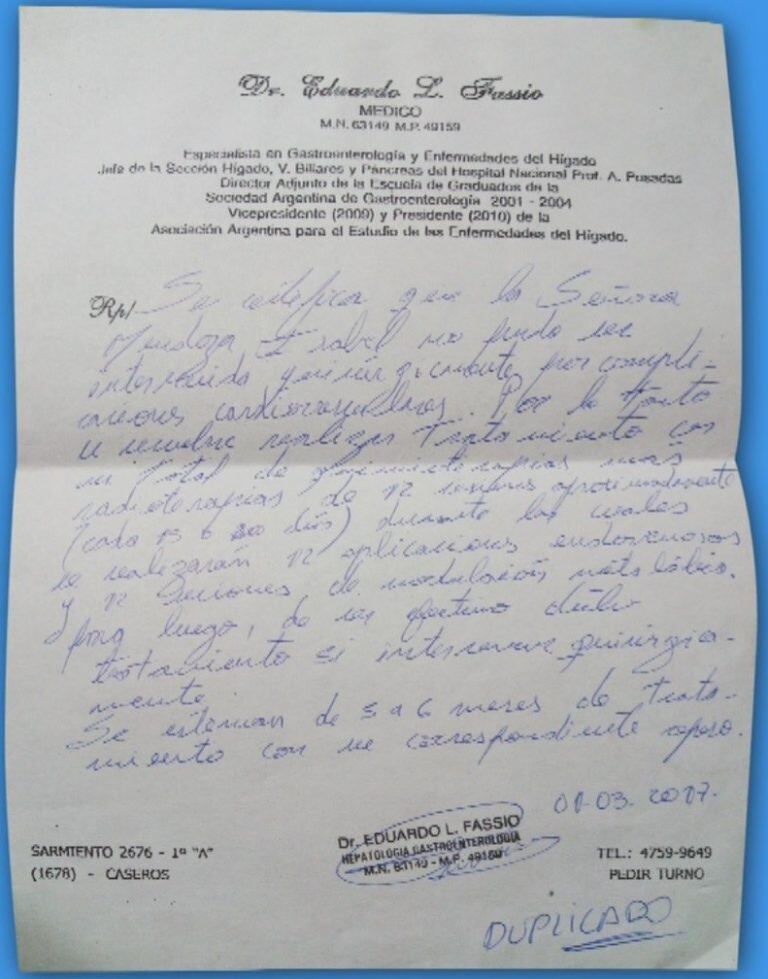 Dr. Eduardo L. Fassio
MEDICO
M.N. 63149 M.P. 49159
Especialista en Gastroenterología y Enfermedades del Hígado
Jefe de la Sección Hígado, V. Biliares y Páncreas del Hospital Nacional Prof. A. Posadas
Director Adjunto de la Escuela de Graduados de la
Sociedad Argentina de Gastroenterología 2001 - 2004
Vicepresidente (2009) y Presidente (2010) de la
Asociación Argentina para el Estudio de las Enfermedades del Hígado.
Rp/ Se certifica que la Señora
Mendoza Isabel no pudo ser
intervenida quirúrgicamente por compli-
caciones cardiovasculares. Por lo tanto
se resuelve realizar tratamiento con
un total de quimioterapias más
radioterapias de 12 sesiones aproximadamente
(cada 15 o 20 días) durante las cuales
se realizarán 12 aplicaciones endovenosas
y 12 sesiones de modulación metabólica.
para luego, de ser efectivo dicho
tratamiento si intervenir quirúrgica-
mente.
Se estiman de 5 a 6 meses de trata-
miento con su correspondiente reposo.
01-03. 2017.
Dr. EDUARDO L. FASSIO
HEPATOLOGIA GASTROENTEROLOGIA
M.N. 63149 - M.P. 49159
SARMIENTO 2676 - 1º "A"
(1678) - CASEROS
TEL.: 4759-9649
PEDIR TURNO
DUPLICADO